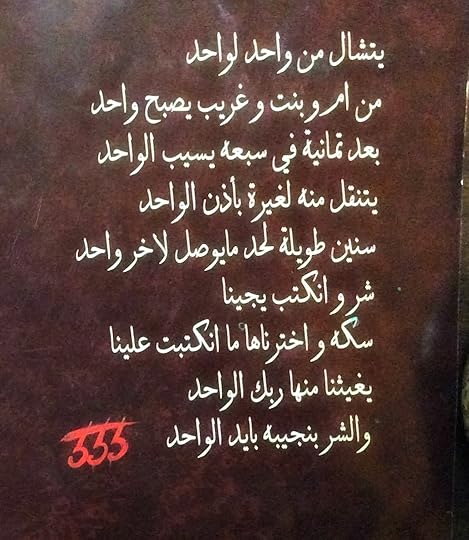 يتشال من واحد لواحد
من ام و بنت و غريب يصبح واحد
بعد تمانية في سبعه يسيب الواحد
يتنقل منه لغيرة بأذن الواحد
سنين طويلة لحد مايوصل لاخر واحد
شر و انكتب يجينا
سكه و اخترناها ما انكتبت علينا
يغيثنا منها ربك الواحد
والشر بنجيبه بايد الواحد
333